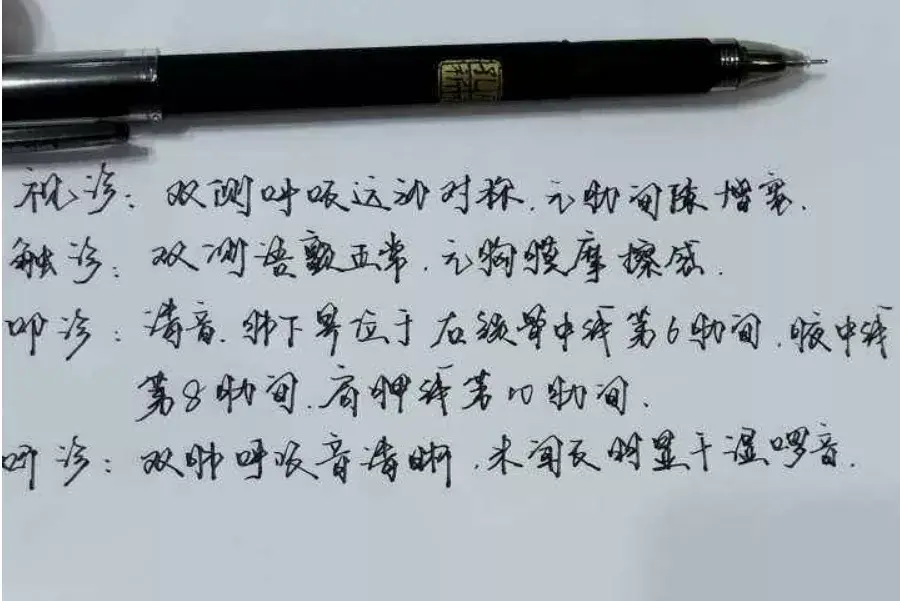 视诊：双侧呼吸运动对称，无肋间隙增宽，
触诊：双侧语颤正常，无胸膜摩擦感，
叩诊：清音，肺下界位于右锁骨中线第6肋间，腋中线
第8肋间，肩胛线第10肋间，
听诊：双肺呼吸音清晰，未闻及明显干湿啰音，